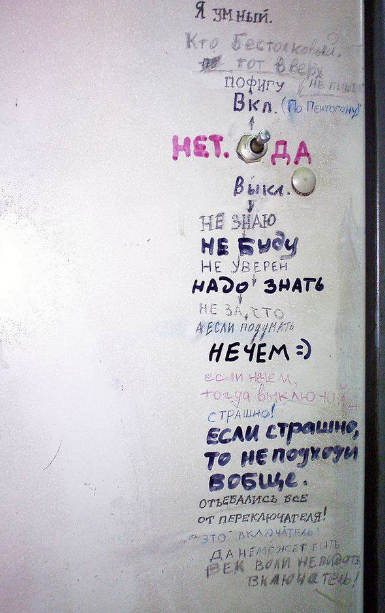 Я умный.
Кто бестолковый,
тот вверх
ПОФИГУ
Вкл. (По Пентагону)
НЕТ. ДА
Выкл.
НЕ ЗНАЮ
НЕ БУДУ
НЕ УВЕРЕН
НАДО ЗНАТЬ
НЕ ЗА ЧТО
А ЕСЛИ ПОДУМАТЬ
НЕЧЕМ =)
если нечем,
тогда выключи
СТРАШНО!
ЕСЛИ СТРАШНО,
ТО НЕ ПОДХОДИ
ВОБЩЕ.
ОТЪЕБАЛИСЬ ВСЕ
ОТ ПЕРЕКЛЮЧАТЕЛЯ!
"ЭТО" ВКЛЮЧАТЕЛЬ
ДА НЕМОЖЕТ БЫТЬ
ВЕК ВОЛИ НЕ ВИДАТЬ
ВКЛЮЧАТЕЛЬ!